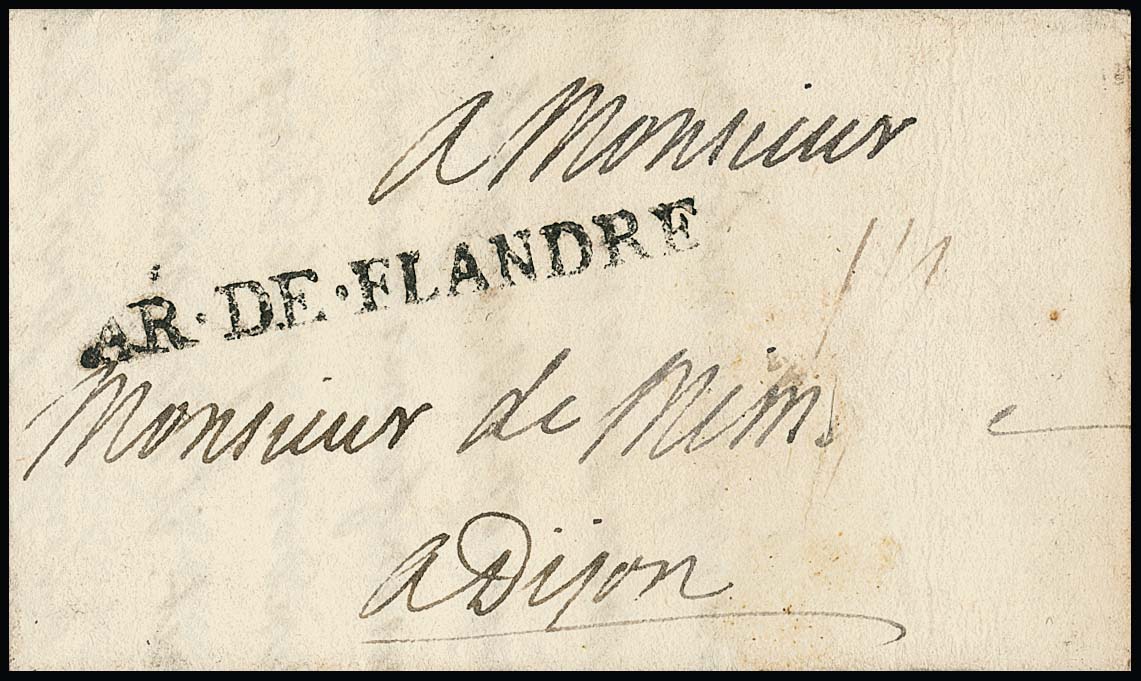 a Monsieur
AR·DE·FLANDRE
Monsieur de
a Dijon